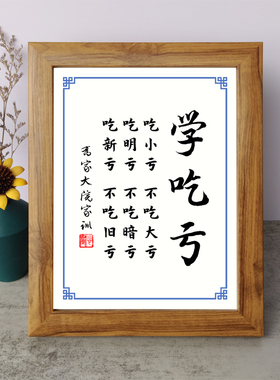 学吃亏
吃小亏 不吃大亏
吃明亏 不吃暗亏
吃新亏 不吃旧亏
乔家大院家训